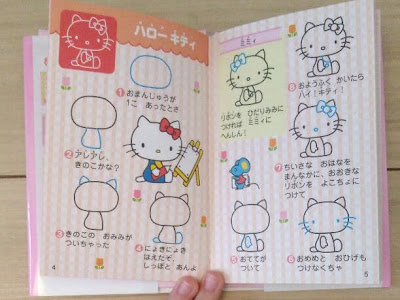 ハローキティ
①おまんじゅうが
1こ あったとさ
②アレアレ、
きのこかな？
③きのこの おみみが
ついちゃった
④にょきにょき
はえたぞ、
しっぽと あんよ
4
ミミィ
リボンを ひだりみみに
つければ ミミィに
へんしん！
⑤おててが
ついて
⑥おめめと おひげも
つけなくちゃ
⑦ちいさな おはなを
まんなかに、おおきな
リボンを よこちょに
つけて
⑧おようふく かいたら
ハイ！キティ！
5